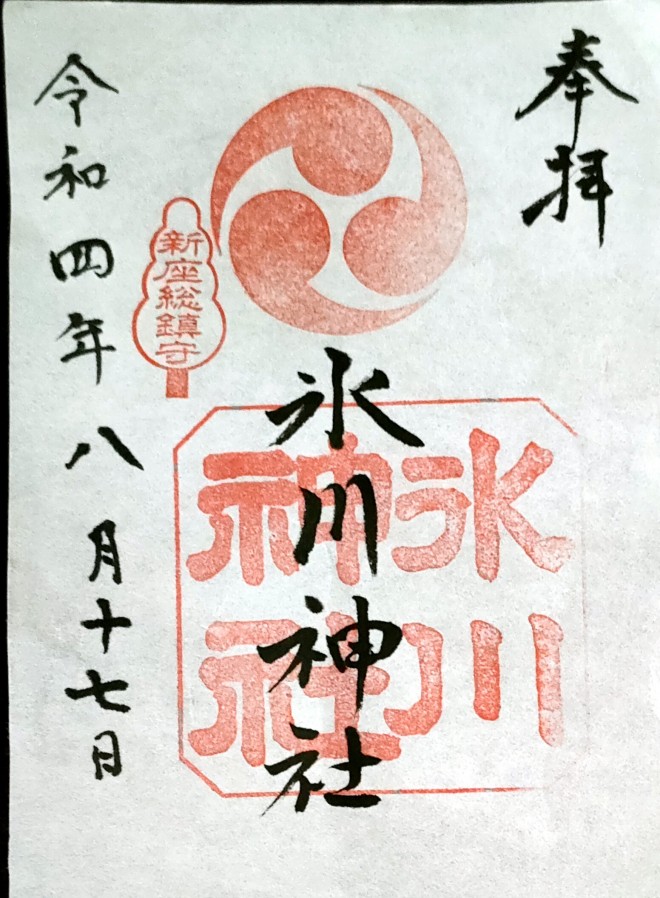 奉拝
氷川神社
氷川
神社
新座総鎮守
令和四年八月十七日